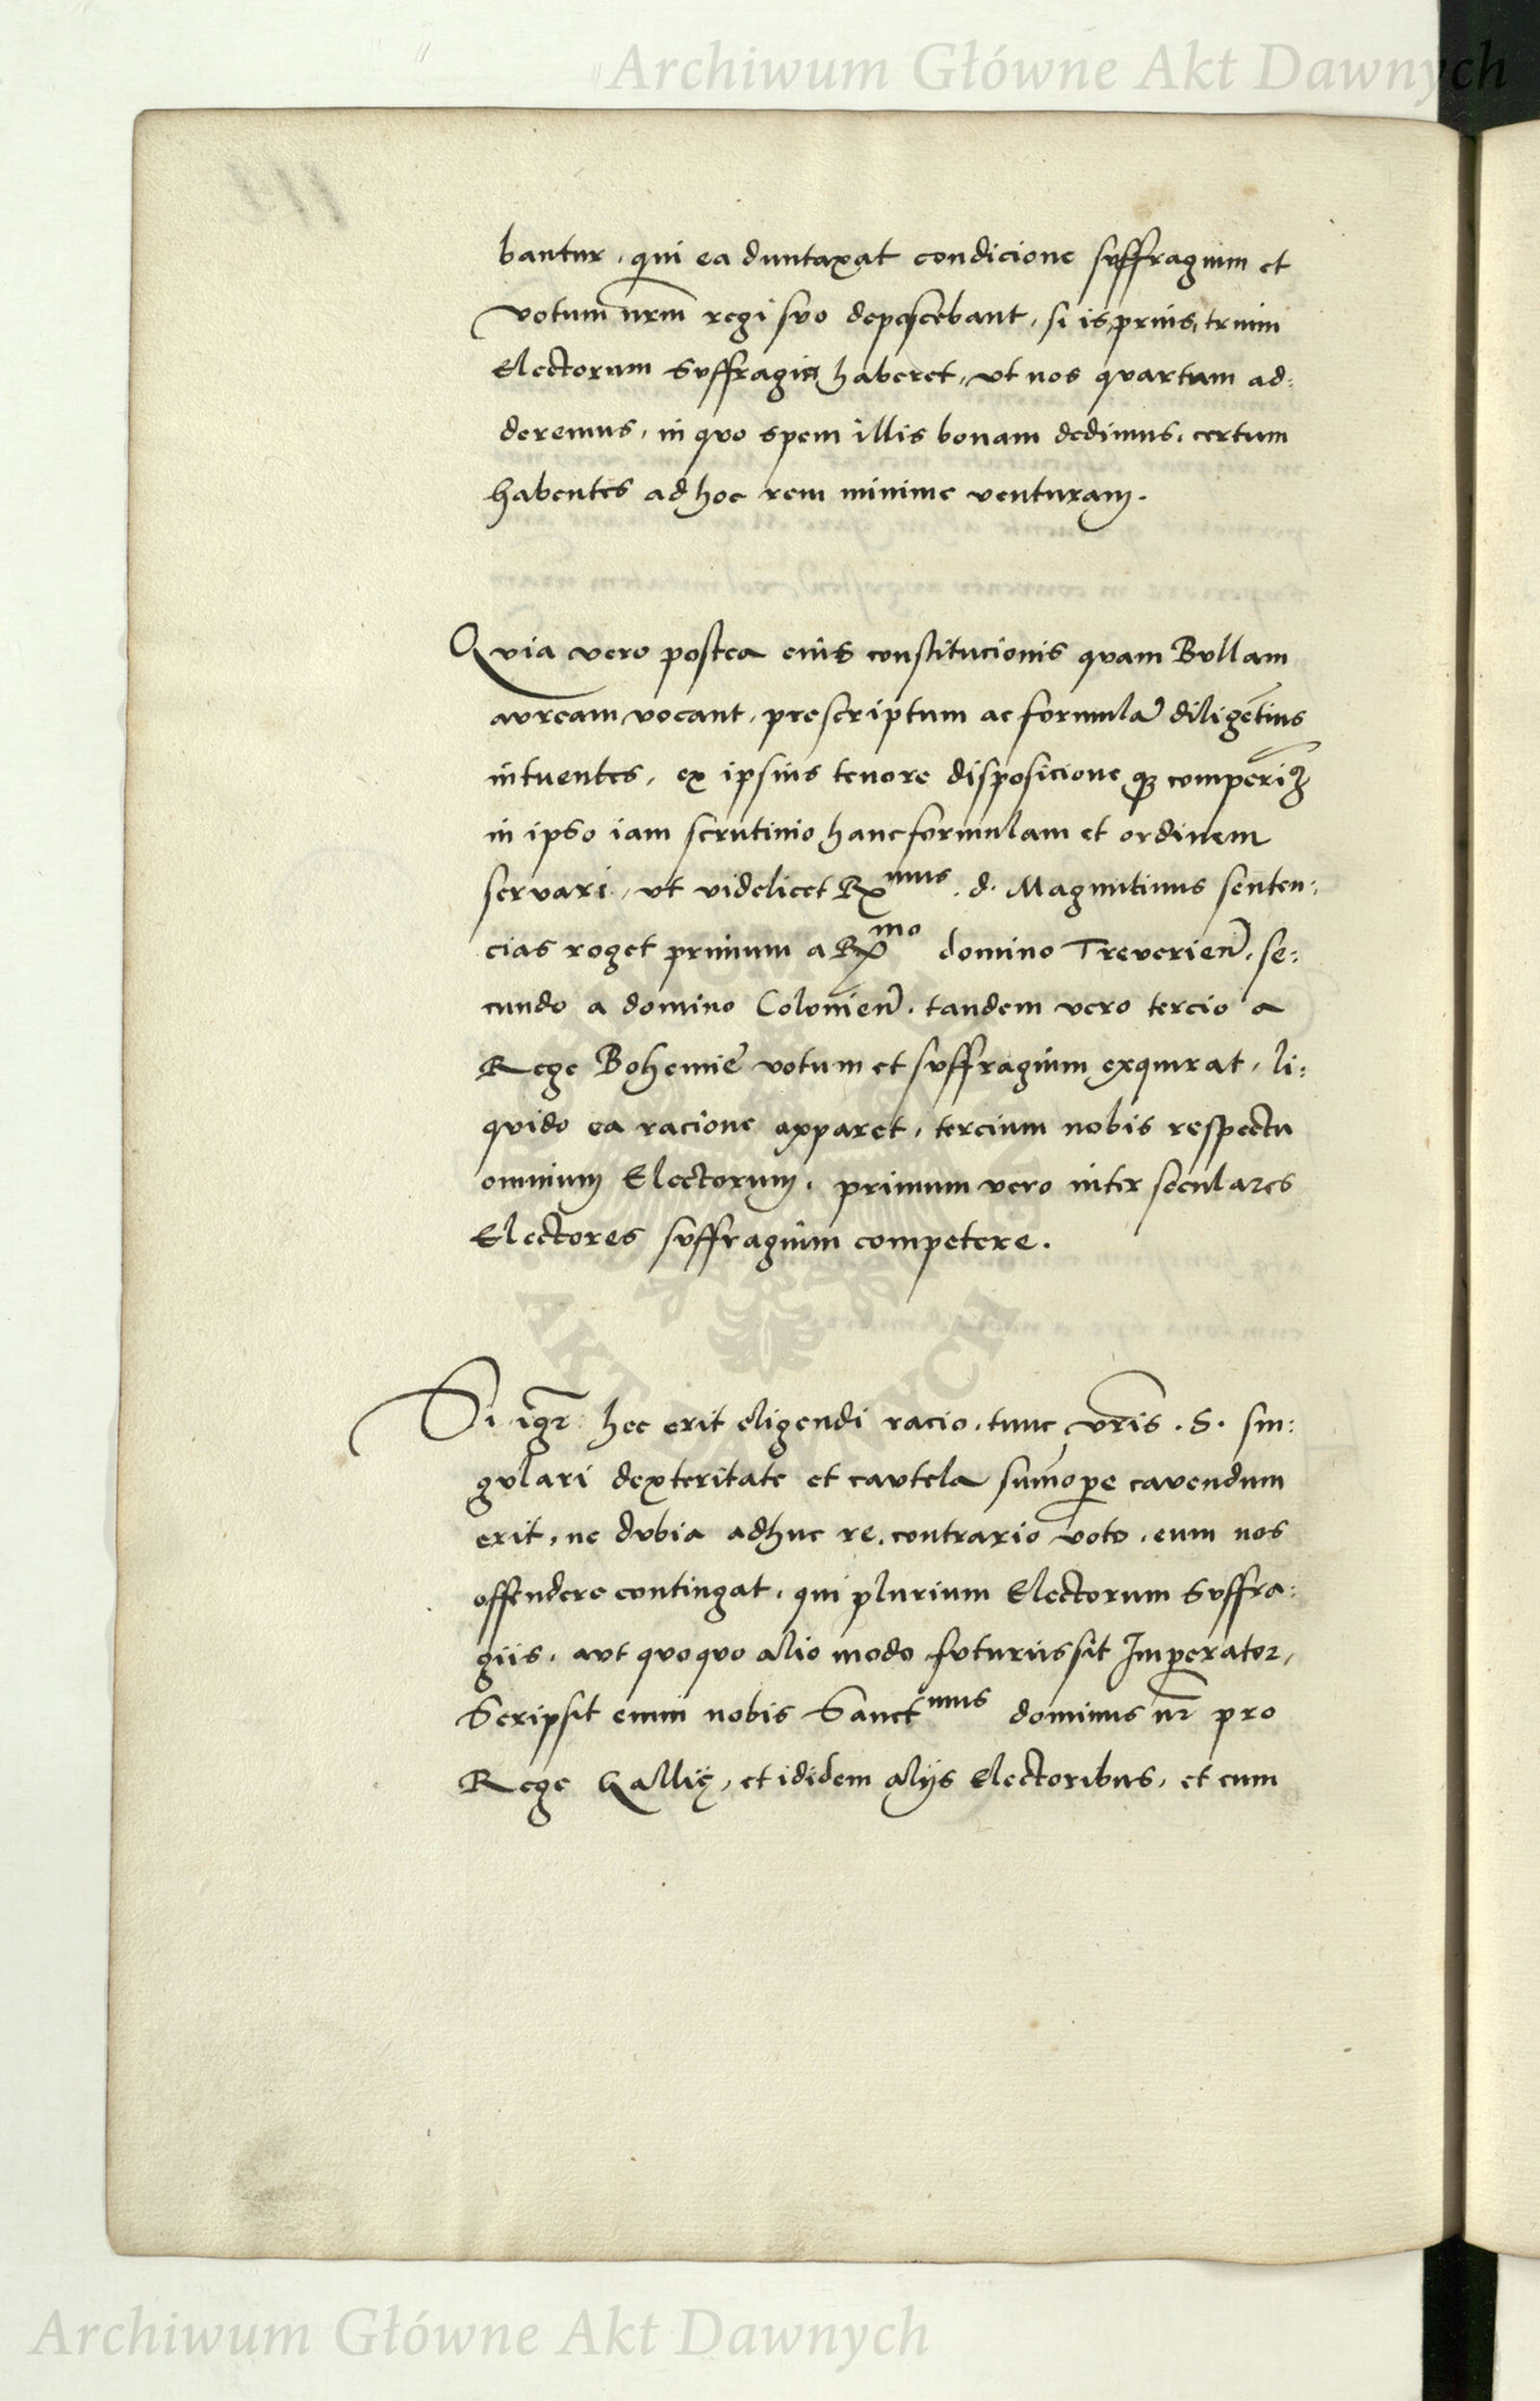 Archiwum Główne Akt Dawnych
bantur, qui ea duntaxat condicione suffragium et
votum nrm̄ regi suo deposcebant, si is prius trium
Electorum Suffragia haberet, ut nos quartum ad:
deremus, in quo spem illis bonam dedimus, certum
habentes ad hoc rem minime venturam.
Quia vero postea eius constitucionis quam Bullam
auream vocant, prescriptum ac formulā diligētius
intuentes, ex ipsius tenore disposicione qꝫ comperimꝰ
in ipso iam scrutinio hanc formulam et ordinem
servari, ut videlicet Rmus. d. Maguntinus senten:
cias roget primum a Rmo domino Treverien̄, se:
cundo a domino Colonien̄. tandem vero tercio a
Rege Bohemie votum et suffragium exquirat, li:
quido ea racione apparet, tercium nobis respectu
omnium Electorum, primum vero inter seculares
Electores suffragium competere.
Si igr̄ hec erit eligendi racio, tunc vr̄is. S. sin:
gulari dexteritate et cautela sum̄oꝑe cavendum
erit, ne dubia adhuc re, contrario voto, eum nos
offendere contingat, qui plurium Electorum Suffra:
giis, aut quoquo alio modo futurus sit Imperator,
Scripsit enim nobis Sanctmus dominus nr̄ pro
Rege Gallię, et ididem alijs Electoribus, et cum
AKT DAWNYCH
Archiwum Główne Akt Dawnych